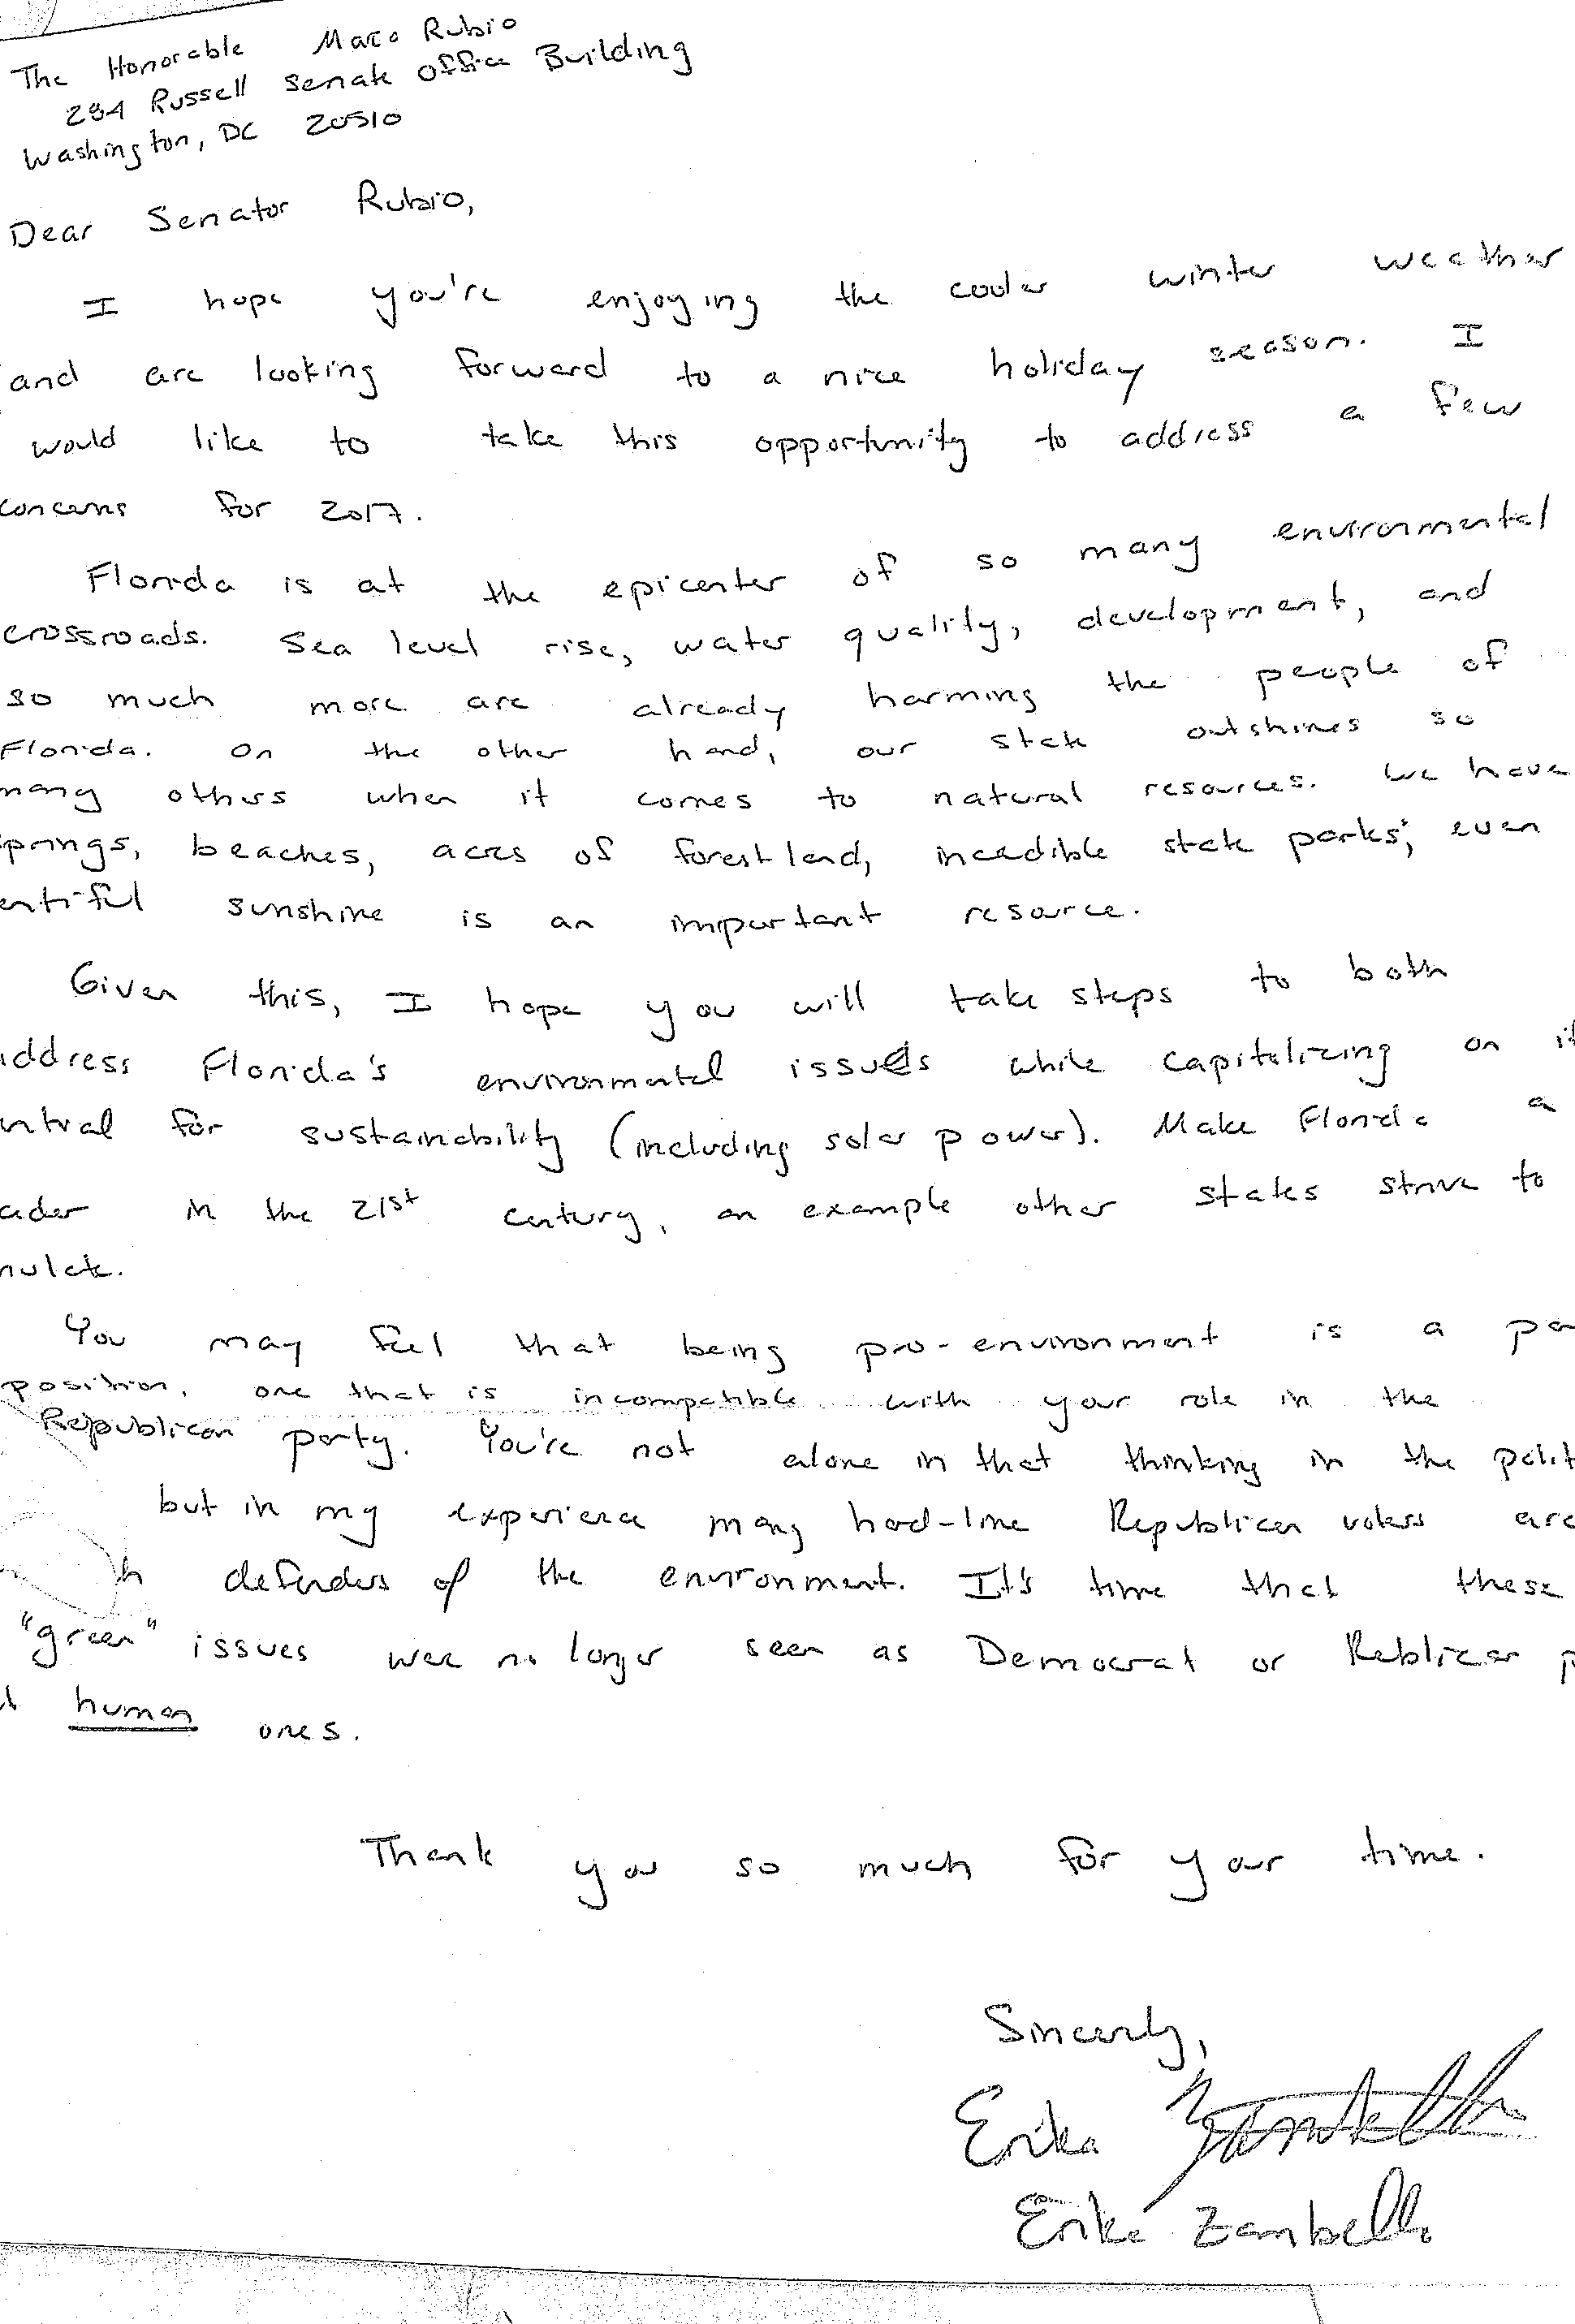 The Honorable Marco Rubio
284 Russell Senate Office Building
Washington, DC 20510
Dear Senator Rubio,
I hope you're enjoying the cooler winter weather
and are looking forward to a nice holiday season. I
would like to take this opportunity to address a few
concerns for 2017.
Florida is at the epicenter of so many environmental
crossroads. Sea level rise, water quality, development, and
so much more are already harming the people of
Florida. On the other hand, our state outshines so
many others when it comes to natural resources. We have
prings, beaches, acres of forest land, incredible state parks; even
entiful sunshine is an important resource.
Given this, I hope you will take steps to both
address Florida's environmental issues while capitalizing on it
ntial for sustainability (including solar power). Make Florida a
ader in the 21st century, an example other states strive to
mulate.
You may feel that being pro-environment is a pa
position, one that is incompatible with your role in the
Republican party. You're not alone in that thinking in the polit
but in my experience many hard-line Republican voters are
h defenders of the environment. It's time that these
"green" issues were no longer seen as Democrat or Reblican p
human ones.
Thank you so much for your time.
Sincerely,
Erika Zambelli
Erika Zambelli